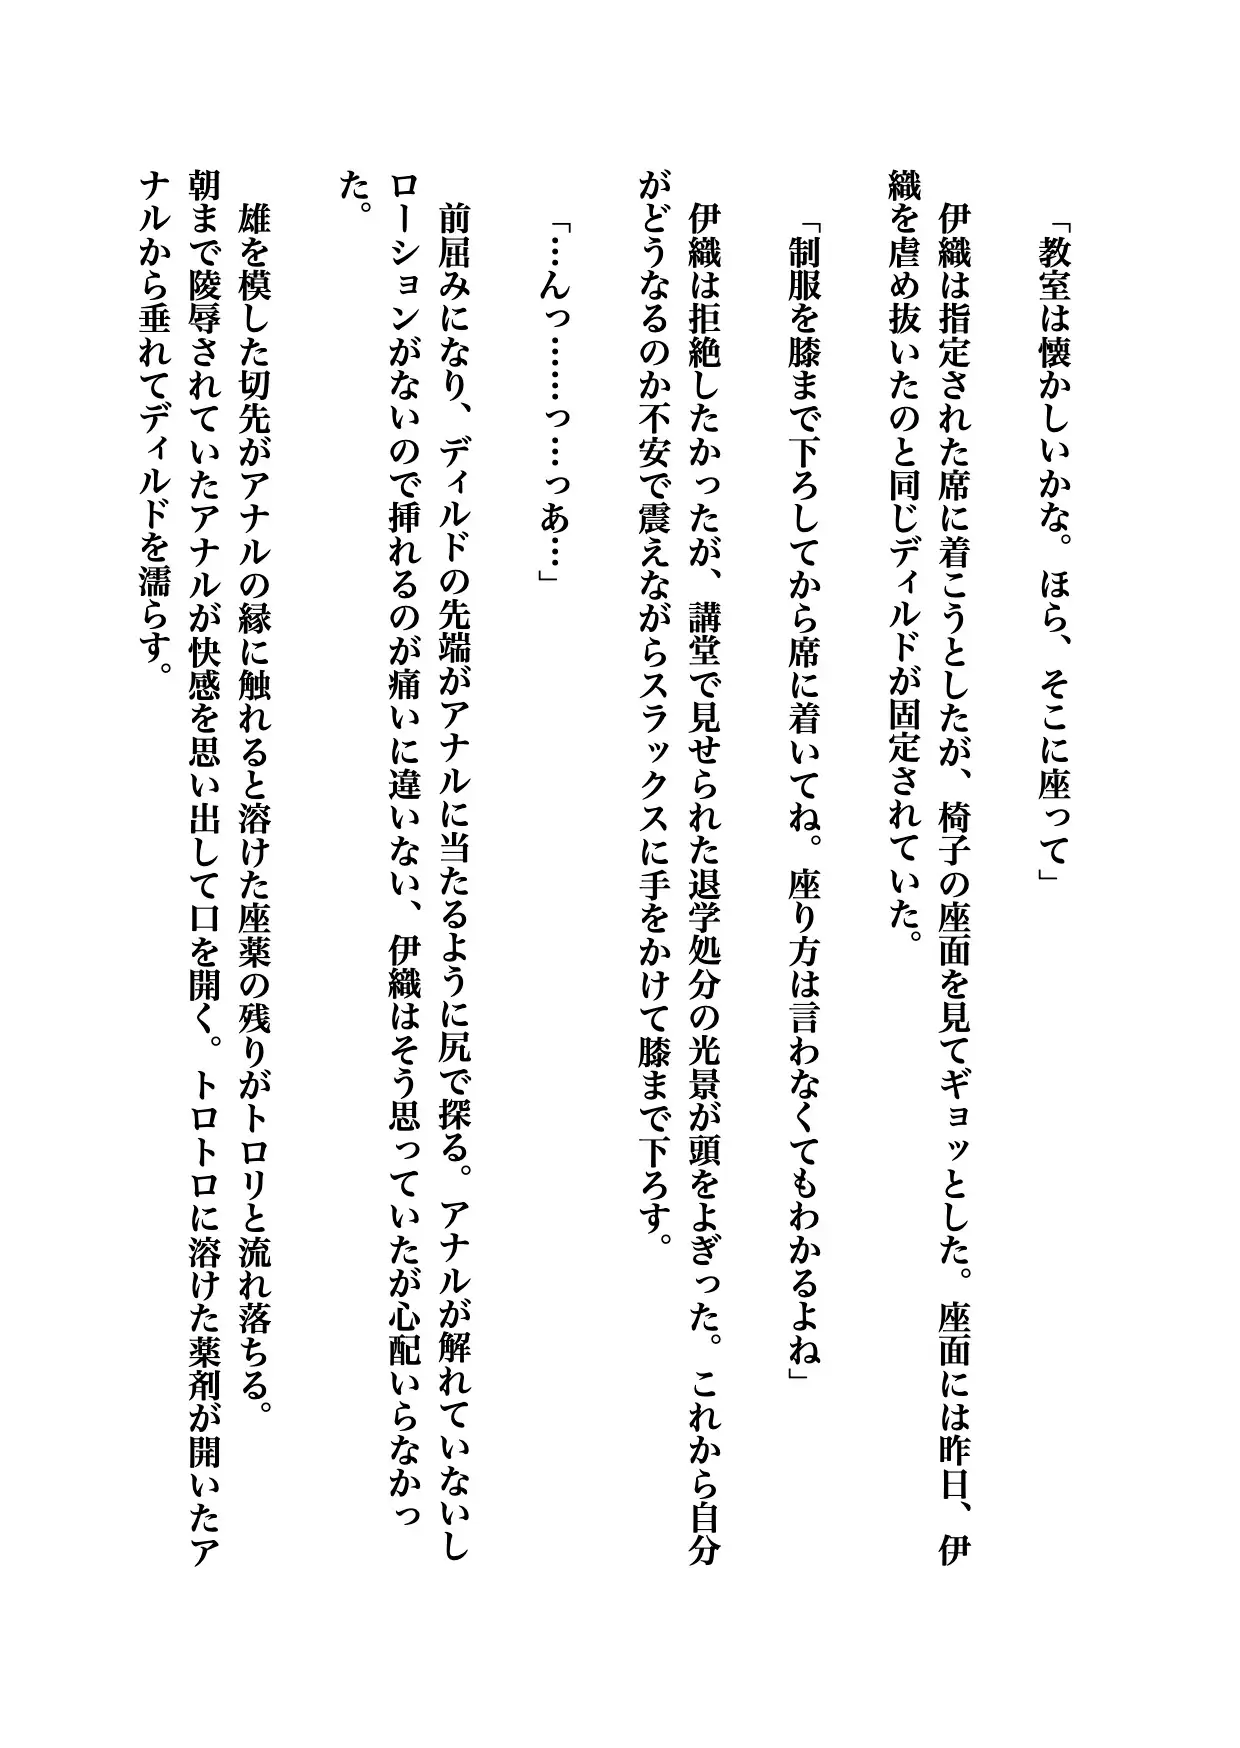 「教室は懐かしいかな。ほら、そこに座って」
伊織は指定された席に着こうとしたが、椅子の座面を見てギョッとした。座面には昨日、伊
織を虐め抜いたのと同じディルドが固定されていた。
「制服を膝まで下ろしてから席に着いてね。座り方は言わなくてもわかるよね」
伊織は拒絶したかったが、講堂で見せられた退学処分の光景が頭をよぎった。これから自分
がどうなるのか不安で震えながらスラックスに手をかけて膝まで下ろす。
「…んっ……っ…っあ…」
前屈みになり、ディルドの先端がアナルに当たるように尻で探る。アナルが解れていないし
ローションがないので挿れるのが痛いに違いない、伊織はそう思っていたが心配いらなかっ
た。
雄を模した切先がアナルの縁に触れると溶けた座薬の残りがトロリと流れ落ちる。
朝まで陵辱されていたアナルが快感を思い出して口を開く。トロトロに溶けた薬剤が開いたア
ナルから垂れてディルドを濡らす。